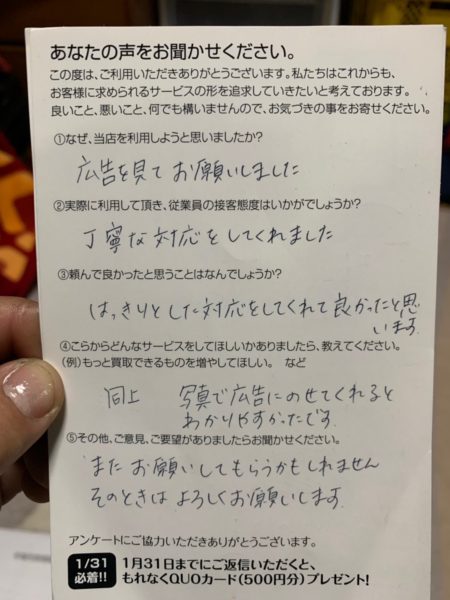 あなたの声をお聞かせください。
この度は、ご利用いただきありがとうございます。私たちはこれからも、
お客様に求められるサービスの形を追求していきたいと考えております。
良いこと、悪いこと、何でも構いませんので、お気づきの事をお寄せください。
①なぜ、当店を利用しようと思いましたか?
広告を見て お願いしました
②実際に利用して頂き、従業員の接客態度はいかがでしょうか?
丁寧な対応をしてくれました
③頼んで良かったと思うことはなんでしょうか?
はっきりとした対応をしてくれて良かったと思
います
④こらからどんなサービスをしてほしいかありましたら、教えてください。
(例)もっと買取できるものを増やしてほしい。 など
同上 写真で広告にのせてくれると
わかりやすかったです
⑤その他、ご意見、ご要望がありましたらお聞かせください。
またお願いしてもらうかもしれません
そのときは よろしくお願いします
アンケートにご協力いただきありがとうございます。
1/31
必着!!
1月31日までにご返信いただくと、
もれなくQUOカード(500円分)プレゼント!